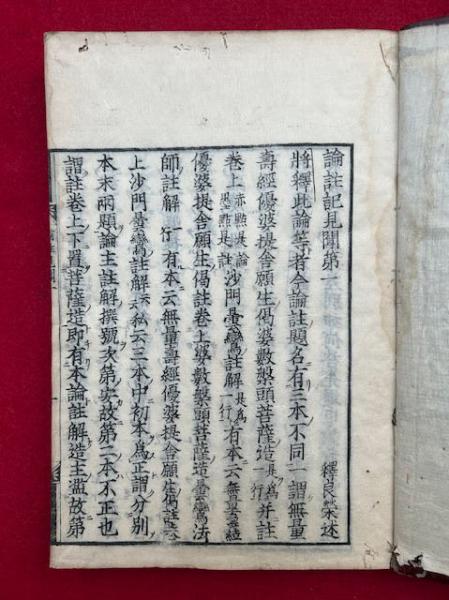 論註記見聞第一 釋良榮述
將釋此論等者今論註題名有三本不同一謂無量
壽經優婆提舍願生偈婆數槃頭菩薩造是為一行并註
卷上赤點是論墨點是註沙門曇鸞註解是為一行有本云無量壽經
優婆提舍願生偈註卷上婆數槃頭菩薩造曇鸞法
師註解一行有本云無量壽經優婆提舍願生偈註
上沙門曇鸞註解文私云三本中初本為正謂分別
本末兩題論主註解撰號次第安故第二本不正也
謂註卷上下置菩薩造即有本論註解造主濫故第